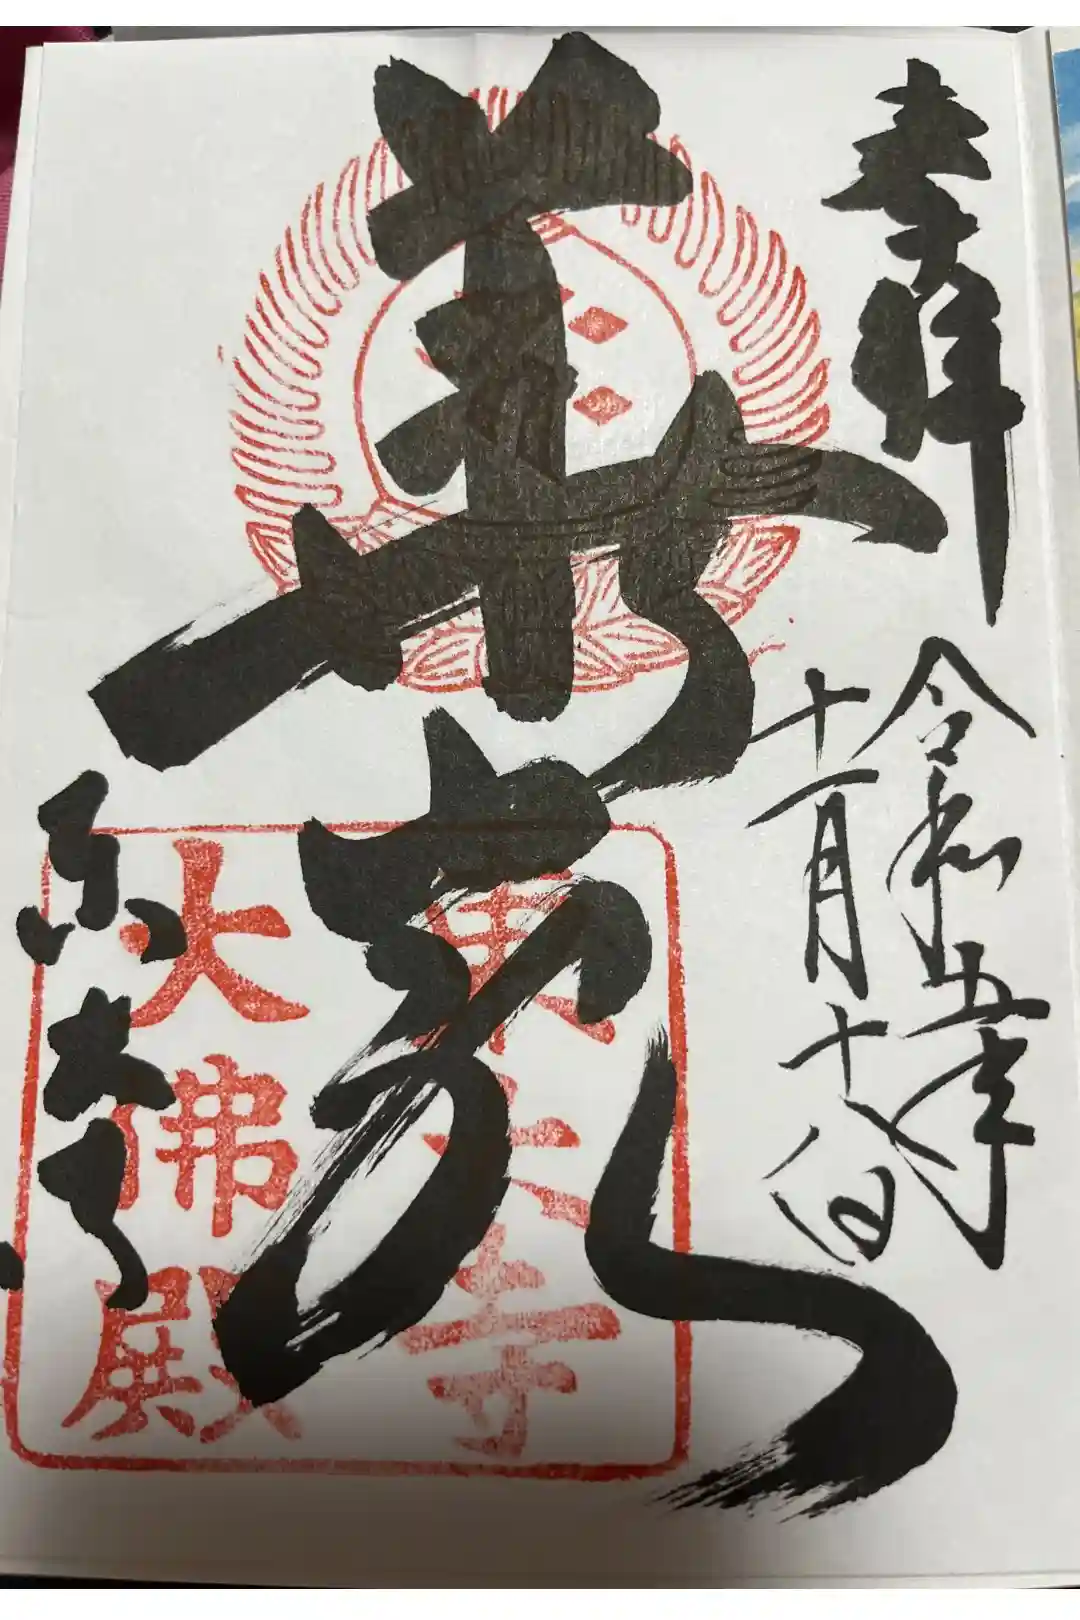 奉拝
令和五年
十一月十八日
華厳
東大寺
東大寺
大佛殿